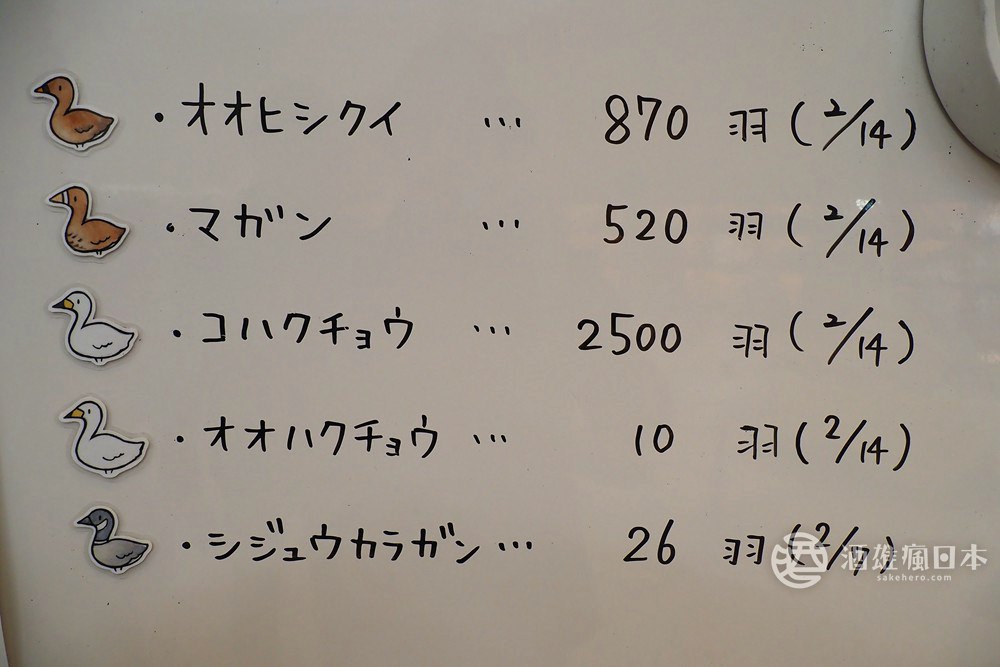 ・オオヒシクイ … 870 羽 (2/14)
・マガン … 520 羽 (2/14)
・コハクチョウ … 2500 羽 (2/14)
・オオハクチョウ … 10 羽 (2/14)
・シジュウカラガン … 26 羽 (2/7)
酒雄瘋日本
sakehero.com